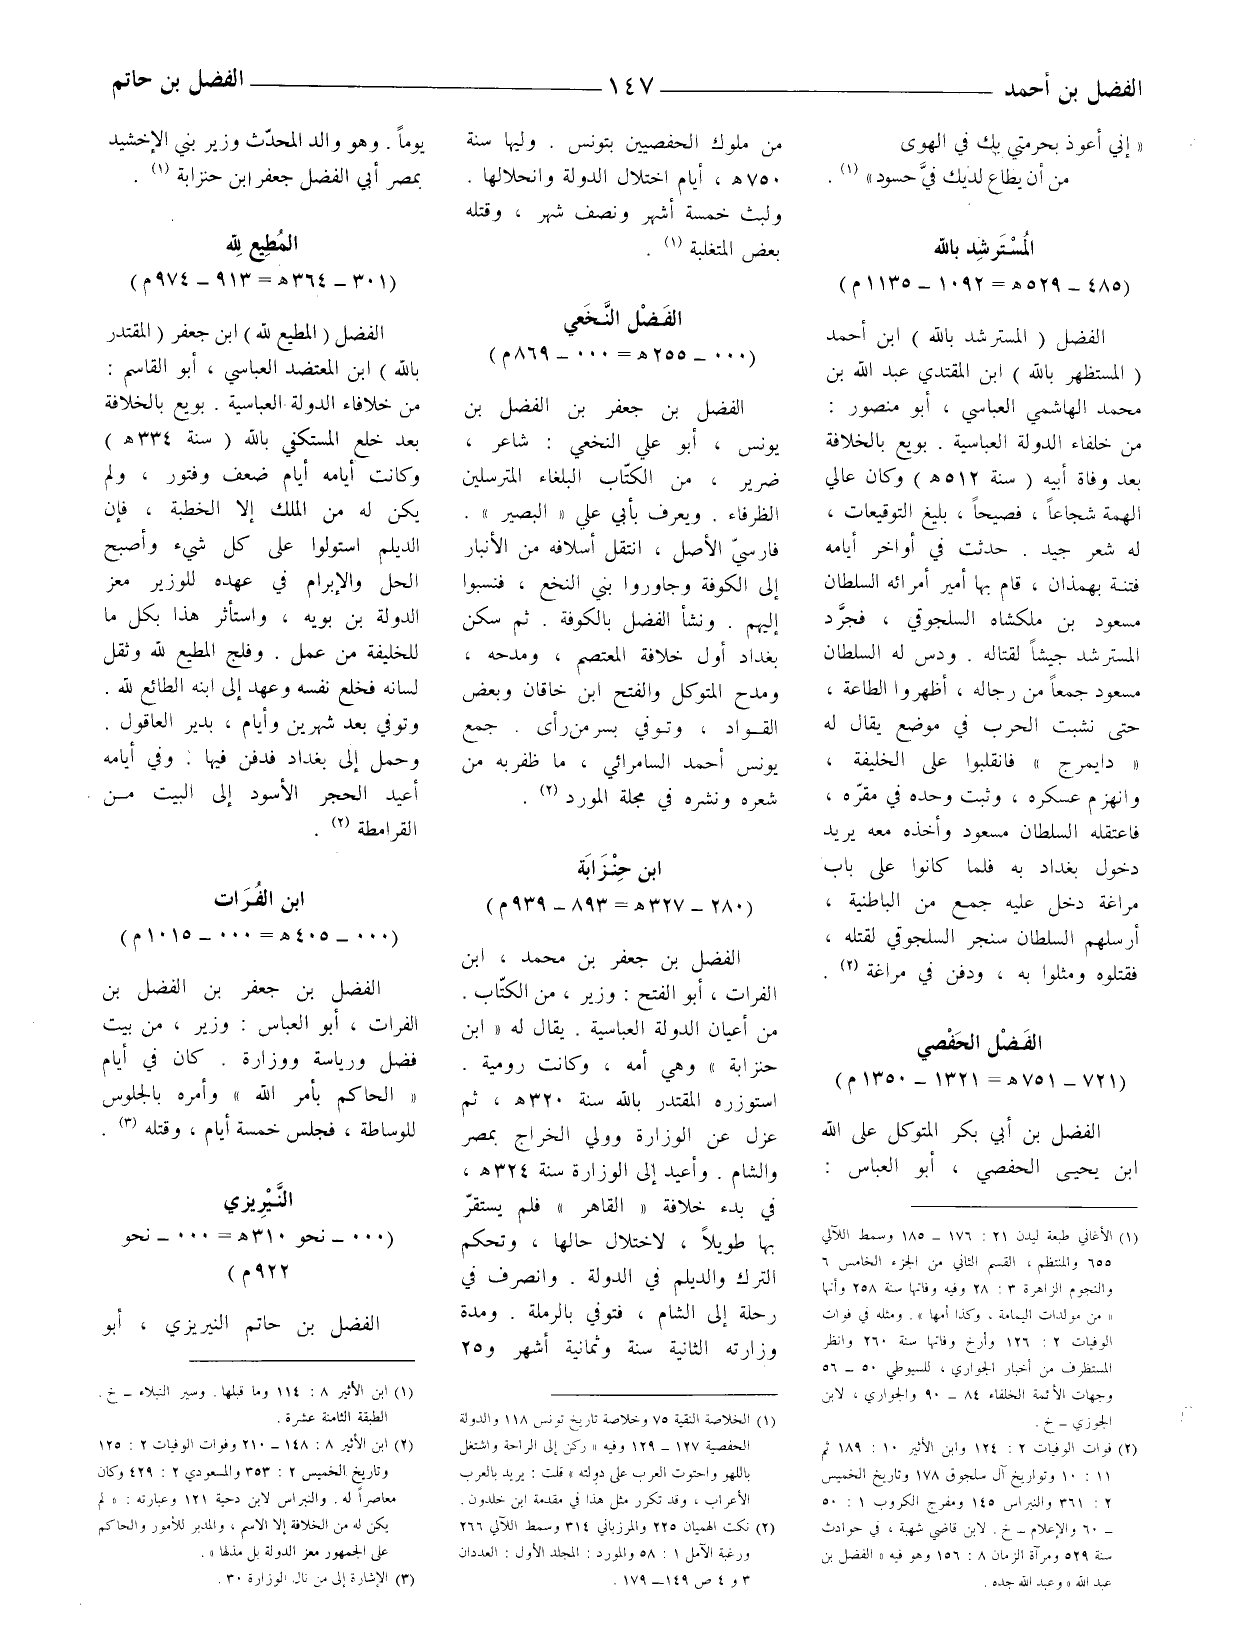 الفضل بن أحمد ــــ ١٤٧ ــــ الفضل بن حاتم
« إني أعوذ بحرمتي بك في الهوى
من أن يطاع لديك فيَّ حسود » (١) .
المُسْتَرشِد بالله
(٤٨٥ ــ ٥٢٩ه = ١٠٩٢ ــ ١١٣٥م)
الفضل ( المسترشد بالله ) ابن أحمد
( المستظهر بالله ) ابن المقتدي عبد الله بن
محمد الهاشمي العباسي ، أبو منصور :
من خلفاء الدولة العباسية . بويع بالخلافة
بعد وفاة أبيه ( سنة ٥١٢ه ) وكان عالي
الهمة شجاعاً ، فصيحاً ، بليغ التوقيعات ،
له شعر جيد . حدثت في أواخر أيامه
فتنة بهمذان ، قام بها أمير أمرائه السلطان
مسعود بن ملكشاه السلجوقي ، فجرَّد
المسترشد جيشاً لقتاله . ودس له السلطان
مسعود جمعاً من رجاله ، أظهروا الطاعة ،
حتى نشبت الحرب في موضع يقال له
« دايمرج » فانقلبوا على الخليفة ،
وانهزم عسكره ، وثبت وحده في مقرّه ،
فاعتقله السلطان مسعود وأخذه معه يريد
دخول بغداد به فلما كانوا على باب
مراغة دخل عليه جمع من الباطنية ،
أرسلهم السلطان سنجر السلجوقي لقتله ،
فقتلوه ومثلوا به ، ودفن في مراغة (٢) .
الفَضْل الحَفْصي
(٧٢١ ــ ٧٥١ه = ١٣٢١ ــ ١٣٥٠م)
الفضل بن أبي بكر المتوكل على الله
ابن يحيى الحفصي ، أبو العباس :
(١) الأغاني طبعة ليدن ٢١ : ١٧٦ ــ ١٨٥ وسمط اللآلي
٦٥٥ والمنتظم ، القسم الثاني من الجزء الخامس ٦
والنجوم الزاهرة ٣ : ٢٨ وفيه وفاتها سنة ٢٥٨ وأنها
« من مولدات اليمامة ، وكذا أمها » . ومثله في فوات
الوفيات ٢ : ١٢٦ وأرخ وفاتها سنة ٢٦٠ وانظر
المستظرف من أخبار الجواري ، للسيوطي ٥٠ ــ ٥٦
وجهات الأئمة الخلفاء ٨٤ ــ ٩٠ والجواري ، لابن
الجوزي ــ خ .
(٢) فوات الوفيات ٢ : ١٢٤ وابن الأثير ١٠ : ١٨٩ ثم
١١ : ١٠ وتواريخ آل سلجوق ١٧٨ وتاريخ الخميس
٢ : ٣٦١ والنبراس ١٤٥ ومفرج الكروب ١ : ٥٠
ــ ٦٠ والإعلام ــ خ . لابن قاضي شهبة ، في حوادث
سنة ٥٢٩ ومرآة الزمان ٨ : ١٥٦ وهو فيه « الفضل بن
عبد الله » وعبد الله جده .
من ملوك الحفصيين بتونس . وليها سنة
٧٥٠ه ، أيام اختلال الدولة وانحلالها .
ولبث خمسة أشهر ونصف شهر ، وقتله
بعض المتغلبة (١) .
الفَضْل النَّخَعي
(٠٠٠ ــ ٢٥٥ه = ٠٠٠ ــ ٨٦٩م)
الفضل بن جعفر بن الفضل بن
يونس ، أبو علي النخعي : شاعر ،
ضرير ، من الكتّاب البلغاء المترسلين
الظرفاء . ويعرف بأبي علي « البصير » .
فارسيّ الأصل ، انتقل أسلافه من الأنبار
إلى الكوفة وجاوروا بني النخع ، فنسبوا
إليهم . ونشأ الفضل بالكوفة . ثم سكن
بغداد أول خلافة المعتصم ، ومدحه ،
ومدح المتوكل والفتح ابن خاقان وبعض
القــواد ، وتــوفي بسر من رأى . جمع
يونس أحمد السامرائي ، ما ظفر به من
شعره ونشره في مجلة المورد (٢) .
ابن حِنْزَابَة
(٢٨٠ ــ ٣٢٧ه = ٨٩٣ ــ ٩٣٩م)
الفضل بن جعفر بن محمد ، ابن
الفرات ، أبو الفتح : وزير ، من الكتّاب .
من أعيان الدولة العباسية . يقال له « ابن
حنزابة » وهي أمه ، وكانت رومية .
استوزره المقتدر بالله سنة ٣٢٠ه ، ثم
عزل عن الوزارة وولي الخراج بمصر
والشام . وأعيد إلى الوزارة سنة ٣٢٤ه ،
في بدء خلافة « القاهر » فلم يستقرّ
بها طويلاً ، لاختلال حالها ، وتحكم
الترك والديلم في الدولة . وانصرف في
رحلة إلى الشام ، فتوفي بالرملة . ومدة
وزارته الثانية سنة وثمانية أشهر و٢٥
(١) الخلاصة النقية ٧٥ وخلاصة تاريخ تونس ١١٨ والدولة
الحفصية ١٢٧ ــ ١٢٩ وفيه « ركن إلى الراحة واشتغل
باللهو واحتوت العرب على دولته » قلت : يريد بالعرب
الأعراب ، وقد تكرر مثل هذا في مقدمة ابن خلدون .
(٢) نكت الهميان ٢٢٥ والمرزباني ٣١٤ وسمط اللآلي ٢٦٦
ورغبة الآمل ١ : ٥٨ والمورد : المجلد الأول : العددان
٣ و ٤ ص ١٤٩ــ ١٧٩ .
يوماً . وهو والد المحدّث وزير بني الإخشيد
بمصر أبي الفضل جعفر ابن حنزابة (١) .
المُطِيع لله
(٣٠١ ــ ٣٦٤ه = ٩١٣ ــ ٩٧٤م)
الفضل ( المطيع لله ) ابن جعفر ( المقتدر
بالله ) ابن المعتضد العباسي ، أبو القاسم :
من خلافاء الدولة العباسية . بويع بالخلافة
بعد خلع المستكفي بالله ( سنة ٣٣٤ه )
وكانت أيامه أيام ضعف وفتور ، ولم
يكن له من الملك إلا الخطبة ، فإن
الديلم استولوا على كل شيء وأصبح
الحل والإبرام في عهده للوزير معز
الدولة بن بويه ، واستأثر هذا بكل ما
للخليفة من عمل . وفلج المطيع لله وثقل
لسانه فخلع نفسه وعهد إلى ابنه الطائع لله .
وتوفي بعد شهرين وأيام ، بدير العاقول .
وحمل إلى بغداد فدفن فيها : وفي أيامه
أعيد الحجر الأسود إلى البيت مــن
القرامطة (٢) .
ابن الفُرَات
(٠٠٠ ــ ٤٠٥ه = ٠٠٠ ــ ١٠١٥م)
الفضل بن جعفر بن الفضل بن
الفرات ، أبو العباس : وزير ، من بيت
فضل ورياسة ووزارة . كان في أيام
« الحاكم بأمر الله » وأمره بالجلوس
للوساطة ، فجلس خمسة أيام ، وقتله (٣) .
النَّيْرِيزي
(٠٠٠ ــ نحو ٣١٠ه = ٠٠٠ ــ نحو
٩٢٢م)
الفضل بن حاتم النيريزي ، أبو
(١) ابن الأثير ٨ : ١١٤ وما قبلها . وسير النبلاء ــ خ .
الطبقة الثامنة عشرة .
(٢) ابن الأثير ٨ : ١٤٨ــ ٢١٠ وفوات الوفيات ٢ : ١٢٥
وتاريخ الخميس ٢ : ٣٥٣ والمسعودي ٢ : ٤٢٩ وكان
معاصراً له . والنبراس لابن دحية ١٢١ وعبارته : « لم
يكن له من الخلافة إلا الاسم ، والمدبر للأمور والحاكم
على الجمهور معز الدولة بل مذلها » .
(٣) الإشارة إلى من نال الوزارة ٣٠ .